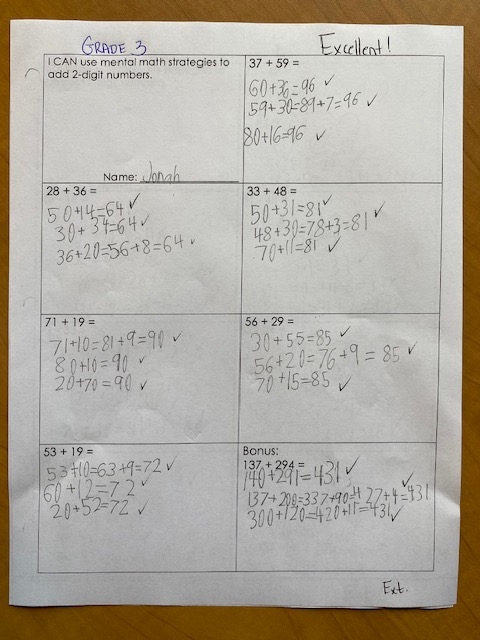 GRADE 3
Excellent!
I CAN use mental math strategies to
add 2-digit numbers.
Name: Jonah
37 + 59 =
60+36=96 ✓
59+30=89+7=96 ✓
80+16=96 ✓
28 + 36 =
50+14=64 ✓
30+34=64 ✓
36+20=56+8=64 ✓
33 + 48 =
50+31=81 ✓
48+30=78+3=81 ✓
70+11=81 ✓
71 + 19 =
71+10=81+9=90 ✓
80+10=90 ✓
20+70=90 ✓
56 + 29 =
30+55=85 ✓
56+20=76+9=85 ✓
70+15=85 ✓
53 + 19 =
53+10=63+9=72 ✓
60+12=72 ✓
20+52=72 ✓
Bonus:
137 + 294 =
140+291=431 ✓
137+200=337+90=427+4=431 ✓
300+120=420+11=431 ✓
Ext.